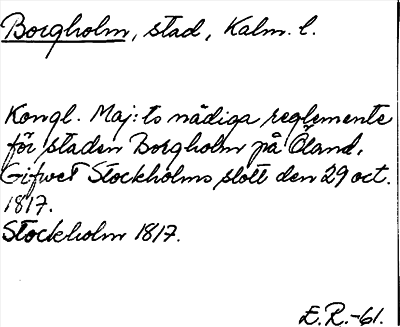 Borgholm, stad, Kalm. l.
Kongl. Maj:ts nådiga reglemente
för staden Borgholm på Öland,
Gifwet Stockholms slott den 29 oct.
1817.
Stockholm 1817.
E.R.-61.